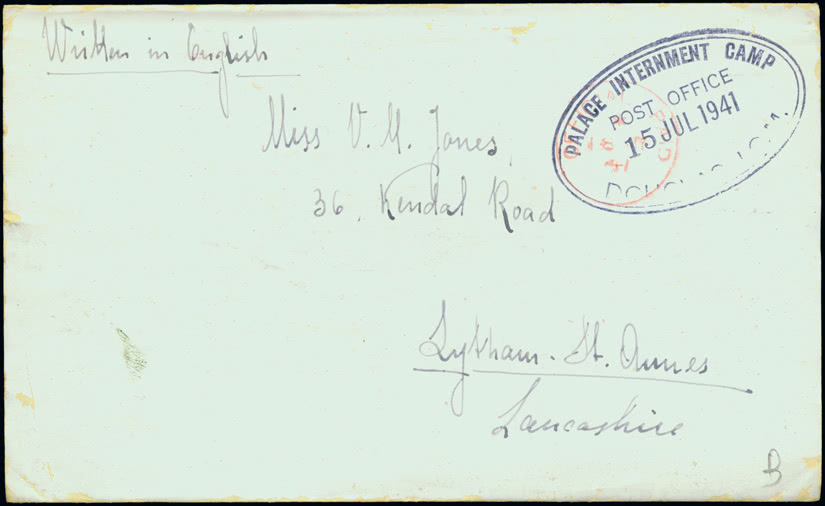 Written in English
PALACE INTERNMENT CAMP
POST OFFICE
15 JUL 1941
DOUGLAS I.O.M.
Miss V. M. Jones,
36, Kendal Road
Lytham-St. Annes
Lancashire
B